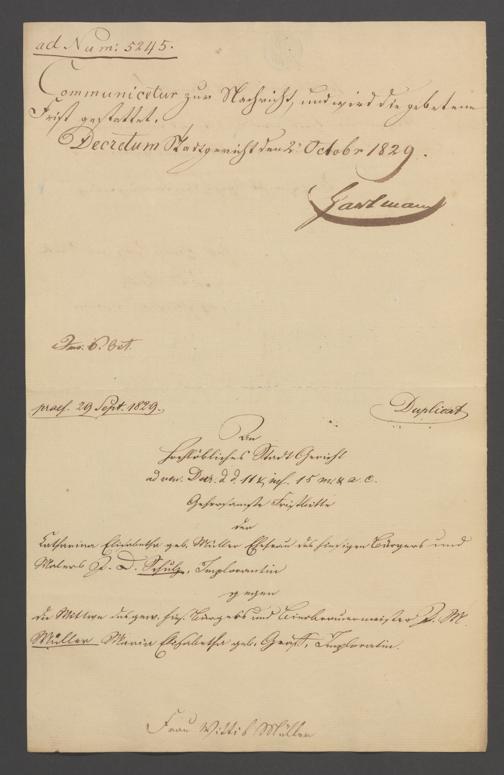 ad Num: 5245.
Communicetur zur Nachricht, und wird die gebetene
Frist gestattet.
Decretum Stadtgericht den 2t Octobr 1829.
Hartmann
6. Oct.
praes. 29 Sept. 1829.
Duplicat
An
Hochlöbliches Stadt Gericht
ad ven. Decr. d. d. 11 & insf. 15 m. & a. c.
Gehorsamste Fristbitte
der
Catharina Elisabetha geb. Müller Ehefrau des hiesigen Bürgers und
Malers J. D. Schulz, Implorantin
gegen
die Wittwe des gew. hies. Bürgers und Bierbrauermeister J. M.
Müller Maria Elisabetha geb. Implorantin.
Frau Wittib Müller